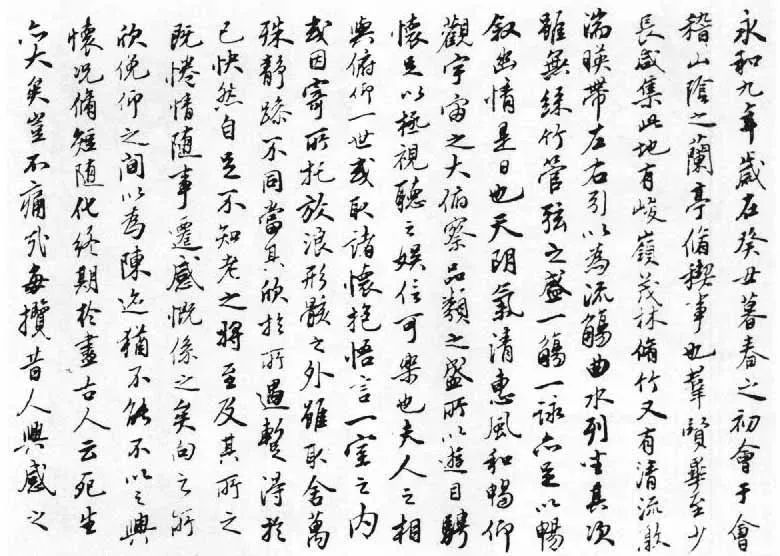 永和九年歲在癸丑暮春之初會于會
稽山陰之蘭亭脩稧事也羣賢畢至少
長咸集此地有峻嶺茂林脩竹又有清流激
湍暎帶左右引以為流觴曲水列坐其次
雖無絲竹管弦之盛一觴一詠亦足以暢
叙幽情是日也天朗氣清惠風和暢仰
觀宇宙之大俯察品類之盛所以遊目騁
懷足以極視聽之娛信可樂也夫人之相
與俯仰一世或取諸懷抱悟言一室之內
或因寄所托放浪形骸之外雖取舍萬
殊靜躁不同當其欣於所遇蹔得於
己快然自足不知老之將至及其所之
既惓情隨事遷感慨係之矣向之所
欣俛仰之間以為陳迹猶不能不以之興
懷況脩短隨化終期於盡古人云死生
亦大矣豈不痛哉每攬昔人興感之